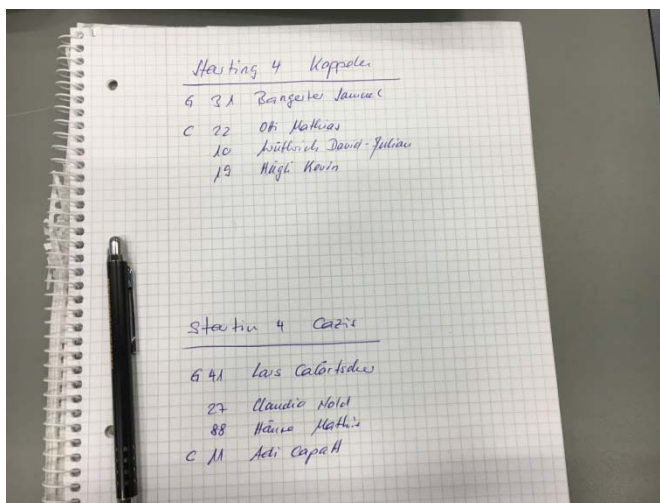 Starting 4 Kappelen
G 31 Bangerter Samuel
C 22 Oti Mathias
10 Lüthrich David-Julian
19 Hügli Kevin
Startin 4 Cazis
G 41 Lars
27 Claudio Nold
88 Mathis
C 11 Adi Capatt